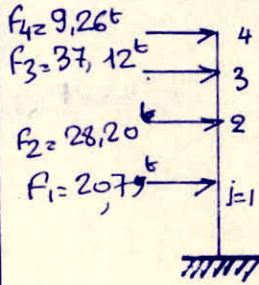 F4=9,26t 4
F3=37,12t 3
F2=28,20t 2
F1=20,79t j=1